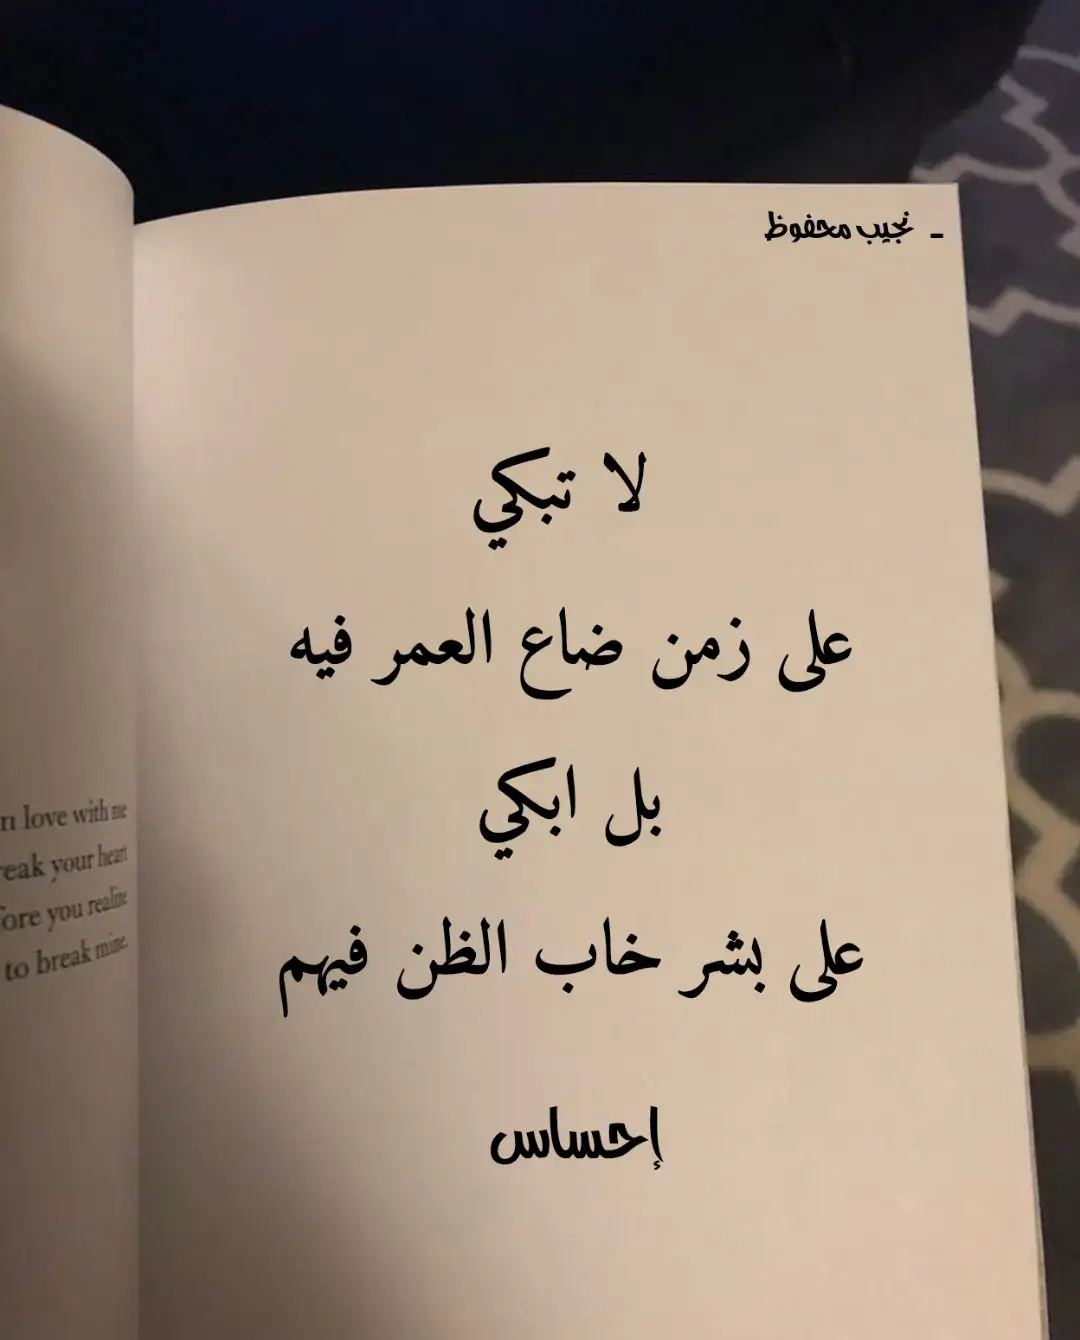 - نجيب محفوظ
لا تبكي
على زمن ضاع العمر فيه
بل ابكي
على بشر خاب الظن فيهم
إحساس
love with me
break your heart
you realize
to break mine.